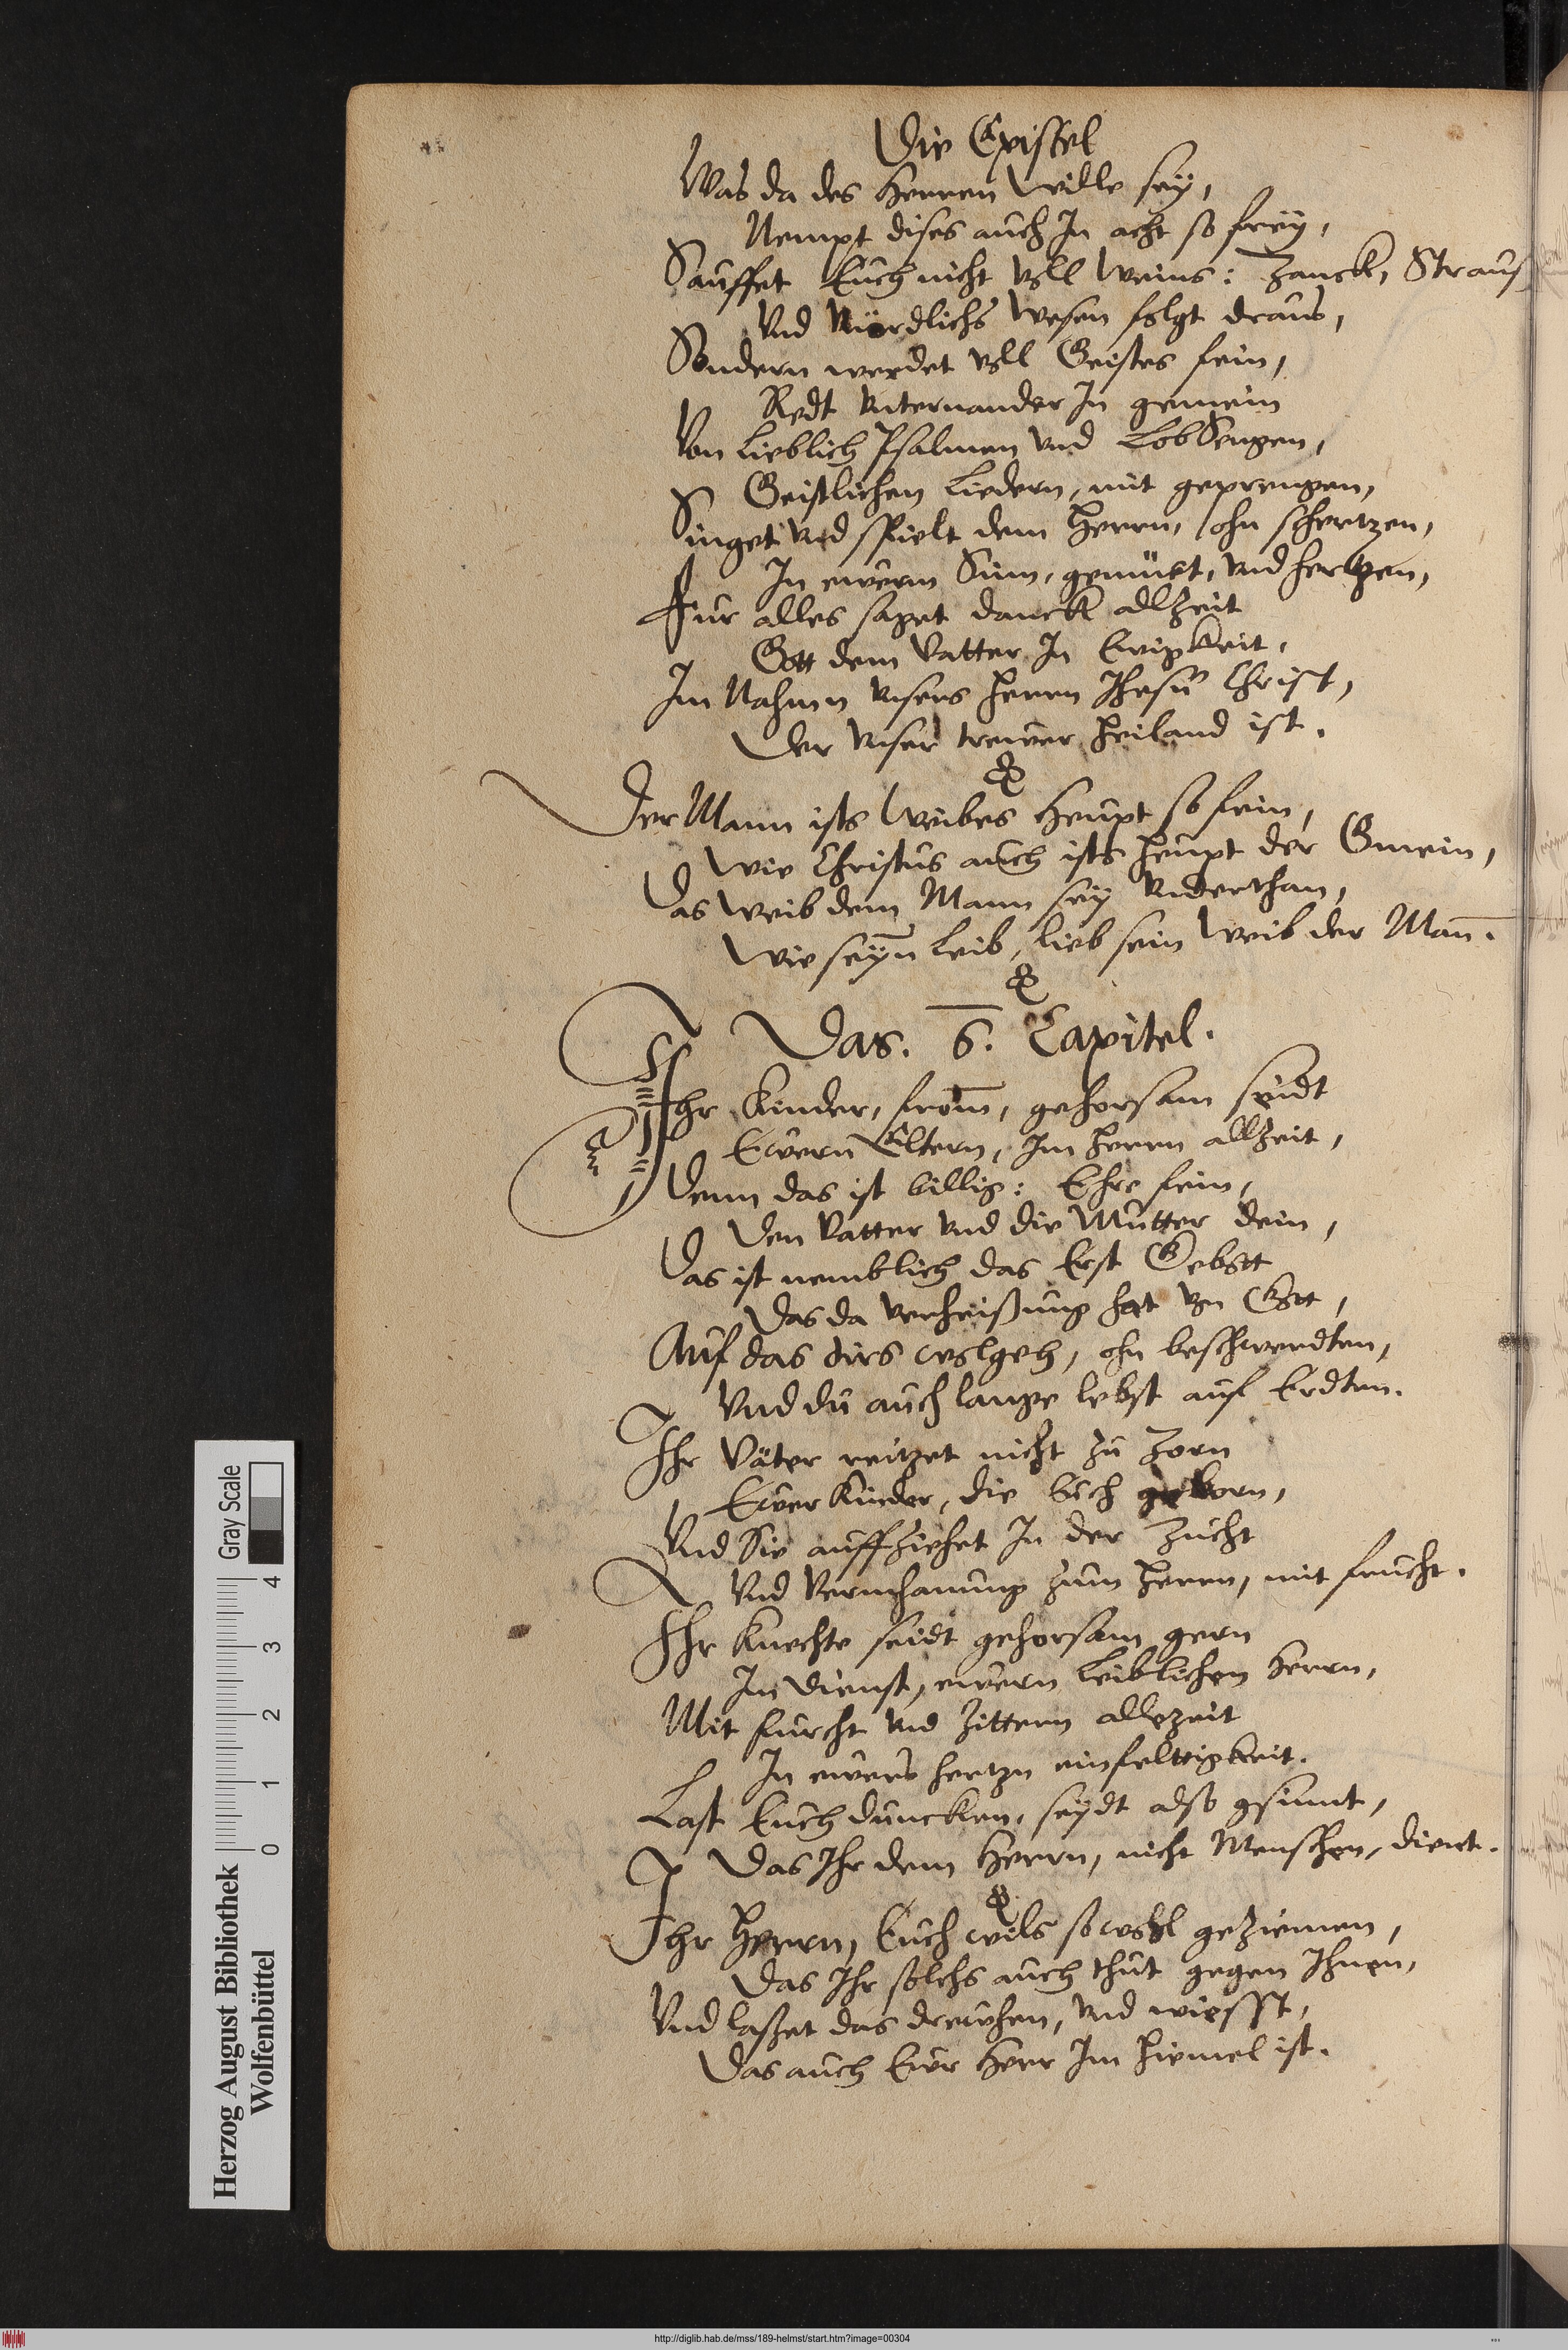 Die Epistel
Was da des Herren Wille sey,
Nempt dises auch In acht so frey,
Sauffet Euch nicht voll Weins: Zanck, Straus
Vnd Vnördlichs Wesen folgt draus,
Sondern werdet voll Geistes fein,
Redt Vnternander In gemein
Von Lieblich Psalmen vnd LobSengen,
Geistlichen Liedern, mit geprengen,
Singet vnd spielt dem Herrn, ohn schertzen,
In ewerm Sinn, gemüet, vnd hertzen,
Für alles saget danck allzeit
Gott dem Vatter In Ewigkeit,
Im Nahmn vnsers Herrn Jhesu Christ,
Der vnser trewer Heiland ist.
Der Mann ists Weibes Heupt so fein,
Wie Christus auch ists Heupt der Gmein,
Das Weib dem Mann sey Vnderthan,
Wie seyn̄ Leib, lieb sein Weib der Man̄.
Das. 6. Capitel.
Ihr Kinder, from̄, gehorsam seidt
Ewern Eltern, Im Herrn allzeit,
Denn das ist billig: Ehre fein,
Den Vatter vnd die Mutter dein,
Das ist nemblich das Erst Gebott
Das da verheißung hat von Gott,
Auf das dirs wolgeh, ohn beschwerdten,
Vnd du auch lange lebst auf Erdten.
Ihr Väter reitzet nicht zu Zorn
Ewer Kinder, die Euch geborn,
Vnd Sie auffziehet In der Zucht
Vnd Vermhanung zum Herrn, mit frucht.
Ihr Knechte seidt gehorsam gern
Im Dienst, ewern Leiblichen Herrn,
Mit furcht vnd Zittern allezeit
In ewers hertzn einfelttigkeit.
Last Euch duncken, seydt also gsinnt,
Das Ihr dem Herrn, nicht Menschen, dient.
Ihr Herrn, Euch wils so wohl geziemen,
Das Ihr solchs auch thut gegen Ihnen,
Vnd laßet das drewhen, vnd wiesst,
Das auch Ewr Herr Im Hiemel ist.
Herzog August Bibliothek
Wolfenbüttel
0 1 2 3 4
Gray Scale
http://diglib.hab.de/mss/189-helmst/start.htm?image=00304